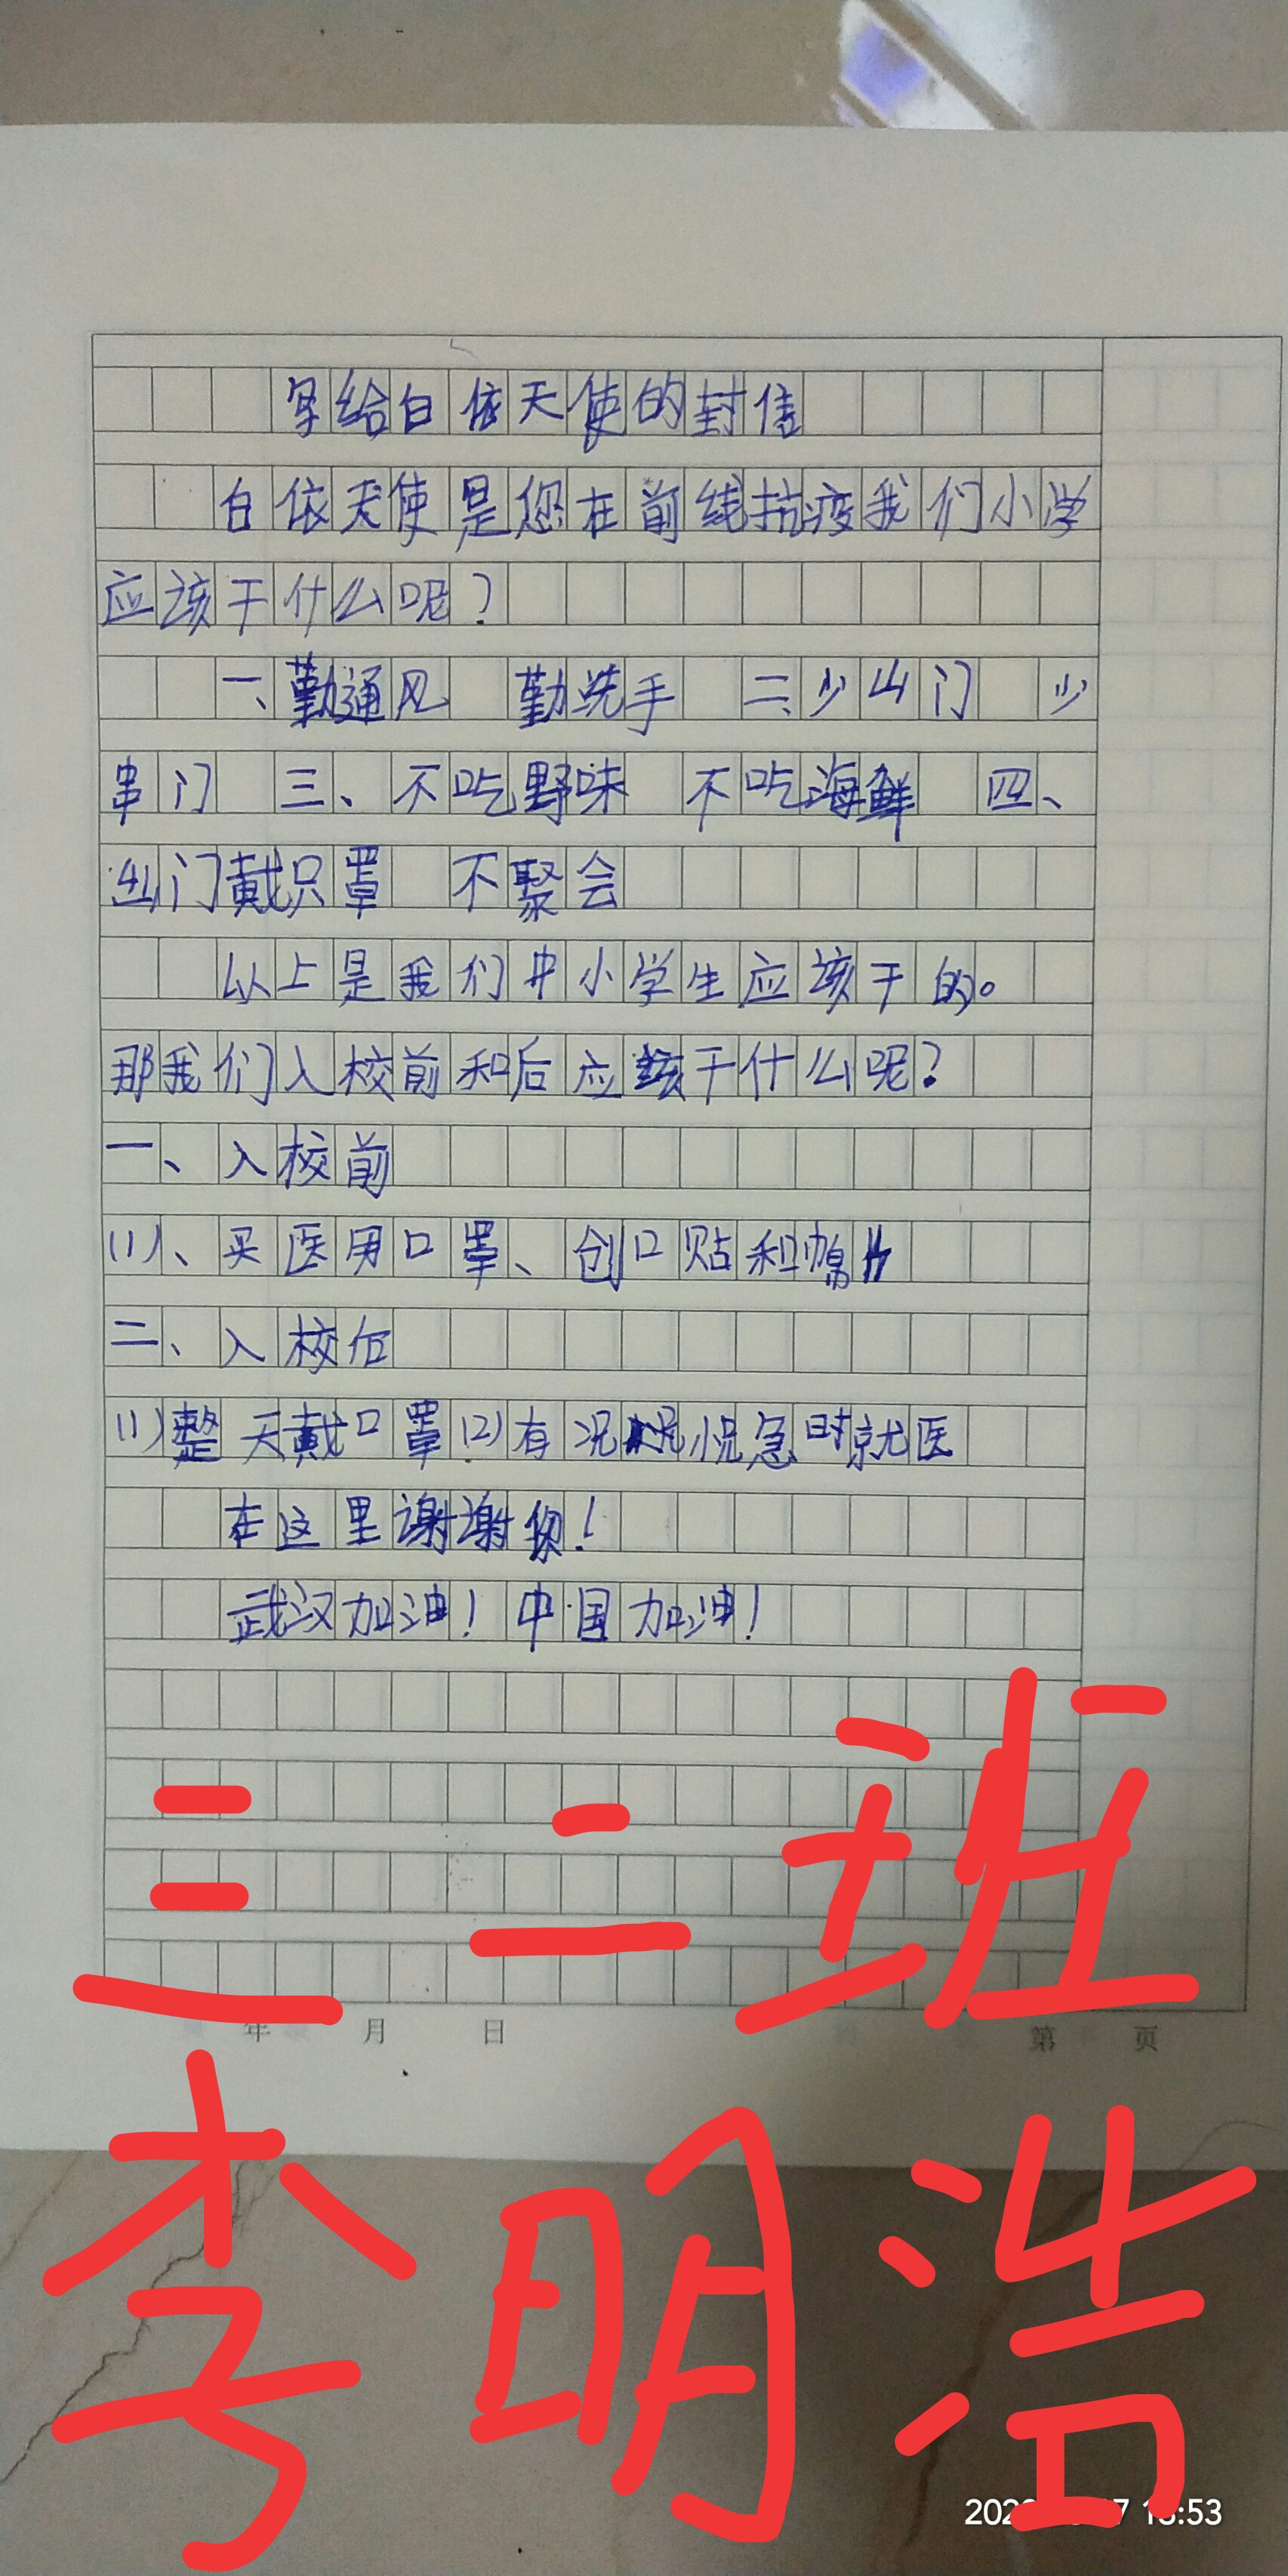 写给白依天使的封信
白依天使是您在前线抗疫我们小学
应该干什么呢?
一、勤通风 勤洗手 二、少出门 少
串门 三、不吃野味 不吃海鲜 四、
出门戴只罩 不聚会
以上是我们中小学生应该干的。
那我们入校前和后应该干什么呢?
一、入校前
(1)、买医用口罩、创口贴和棉
二、入校后
(1)整天戴口罩(2)有况急时就医
在这里谢谢你!
武汉加油!中国加油!
三二班
年 月 日 第 页
李明浩
:53